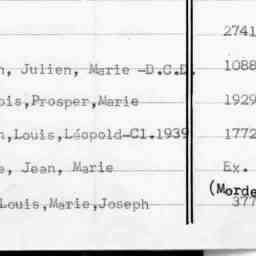 2741
n, Julien, Marie -D.C.D. 1088
ois,Prosper,Marie 1929
n,Louis,Léopold-Cl.1939 1772
e, Jean, Marie Ex.
(Morde
Louis,Marie,Joseph 377